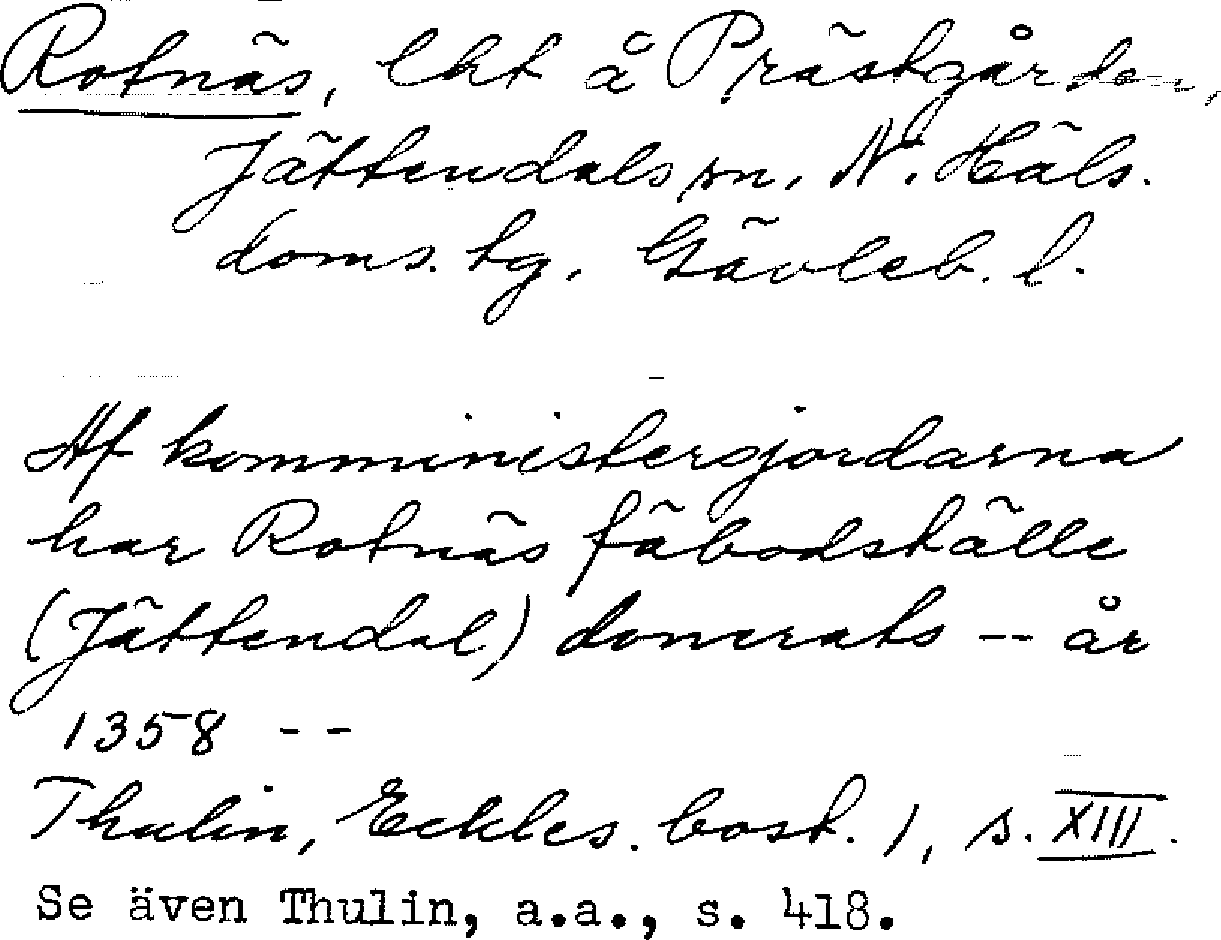 Rotnäs, lht å Prästgården,
Jättendals sn. N. Häls.
doms. tg. Gävleb. l.
Af komministersjordarna
har Rotnäs fäbodställe
(Jättendal) donerats -- år
1358 --
Thulin, Eckles. bost. 1, s. XIII.
Se även Thulin, a.a., s. 418.